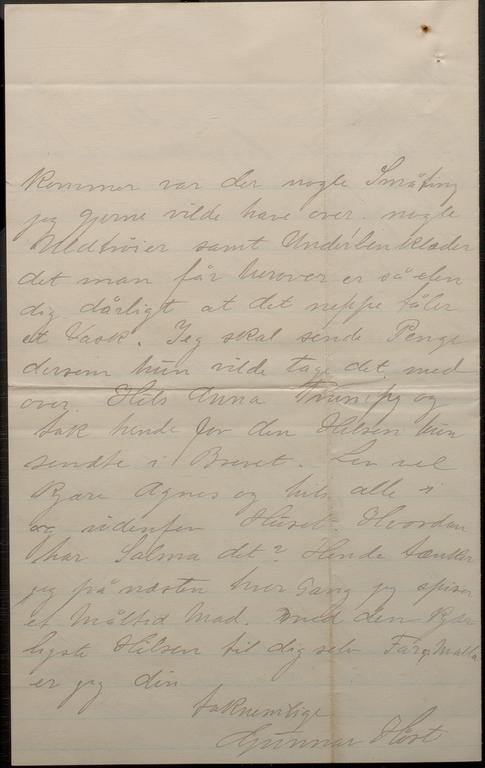 Kommer var der nogle Småting
jeg gjerne vilde have over. nogle
Uldtrøier samt Underbenklæder
det man får herover er så elen
dig dårligt at det neppe tåler
et Vask. Jeg skal sende Penge
dersom hun vilde tage det med
over. Hils Anna og
tak hende for den Hilsen hun
sendte i Brevet. Lev vel
Kjære Agnes og hils alle i
og udenfor Huset. Hvordan
har Salma det? Hende tænker
jeg på næsten hver Gang jeg spiser
et Måltid Mad. med den Kjær
ligste Hilsen til dig selv Far og
er jeg din
taknemlige
Gunnar Høst